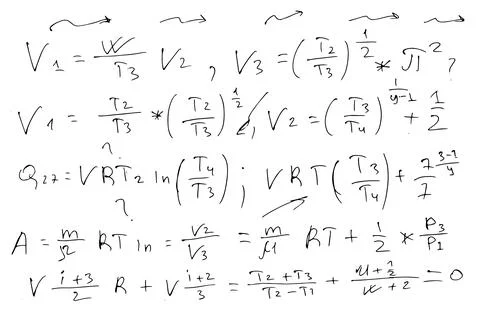 V₁ = W/T₃ V₂, V₃ = (T₂/T₃)^(1/2) * π² ?
V₁ = T₂/T₃ * (T₂/T₃)^(1/2), V₂ = (T₃/T₄)^(1/(y-1)) + 1/2
Q₂₇ = VRT₂ ln(T₄/T₃); VRT(T₃/T₄) +
A = m/Ω RT ln = V₂/V₃ = m/μ RT + 1/2 * P₃/P₁
V (i+3)/2 R + V (i+2)/3 = (T₂+T₃)/(T₂-T₁) + = 0